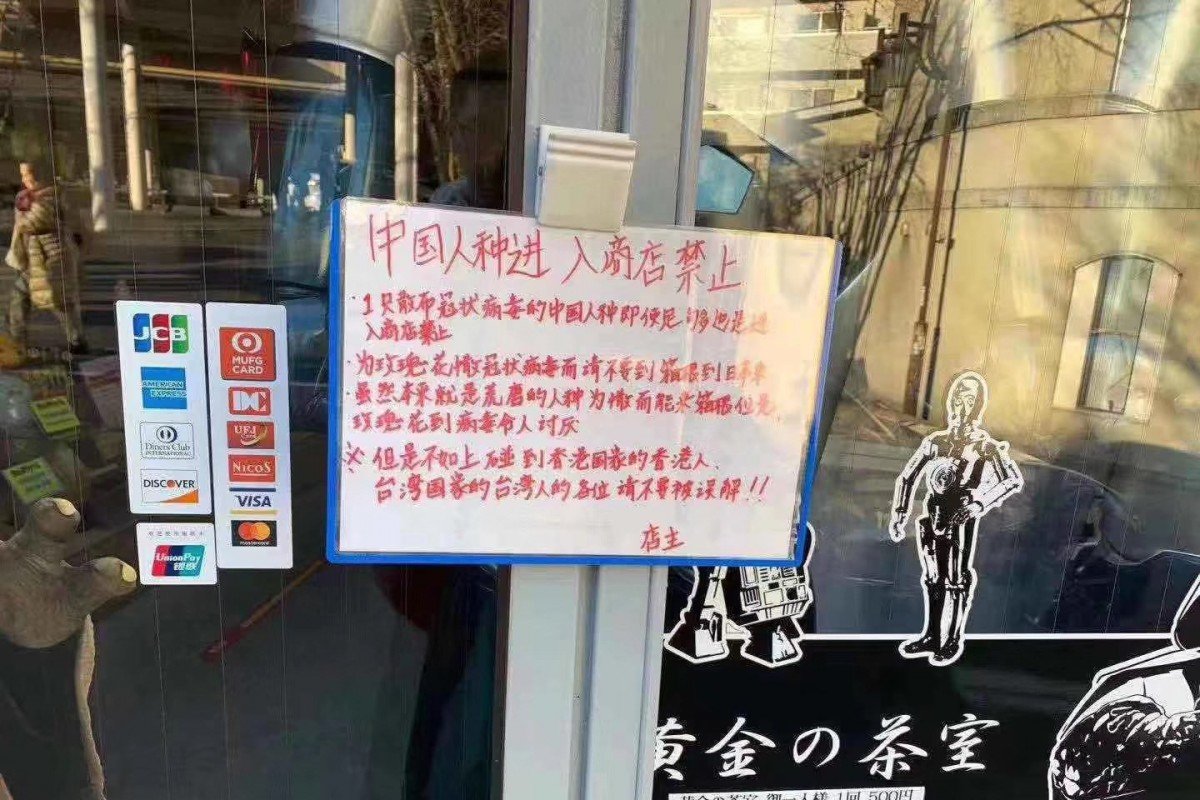 中国人种进入商店禁止
・1只散布冠状病毒的中国人种即使足够也是进
入商店禁止
・为玫瑰花撒冠状病毒而请不要到箱根到日本来
・虽然本来就是荒磨的人种为撒而能来箱根但是
玫瑰花到病毒令人讨厌
※但是不如上碰到香港国家的香港人、
台湾国家的台湾人的各位请不要被误解!!
店主
JCB
AMERICAN EXPRESS
Diners Club
INTERNATIONAL
DISCOVER
UnionPay
银联
MUFG
CARD
DC
UFJ Card
NICOS
VISA
mastercard
黄金の茶室
黄金の茶室 御一人様 1回 500円